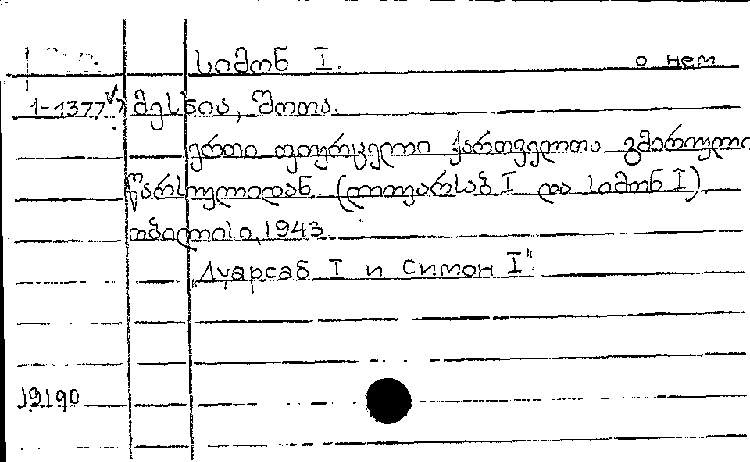 სიმონ I. о нем
1-1377 მესხია, შოთა.
ერთი ფურცელი ქართველთა გმირული
წარსულიდან (ლუარსაბ I და სიმონ I).
თბილისი, 1943.
„Луарсаб I и Симон I"
19190